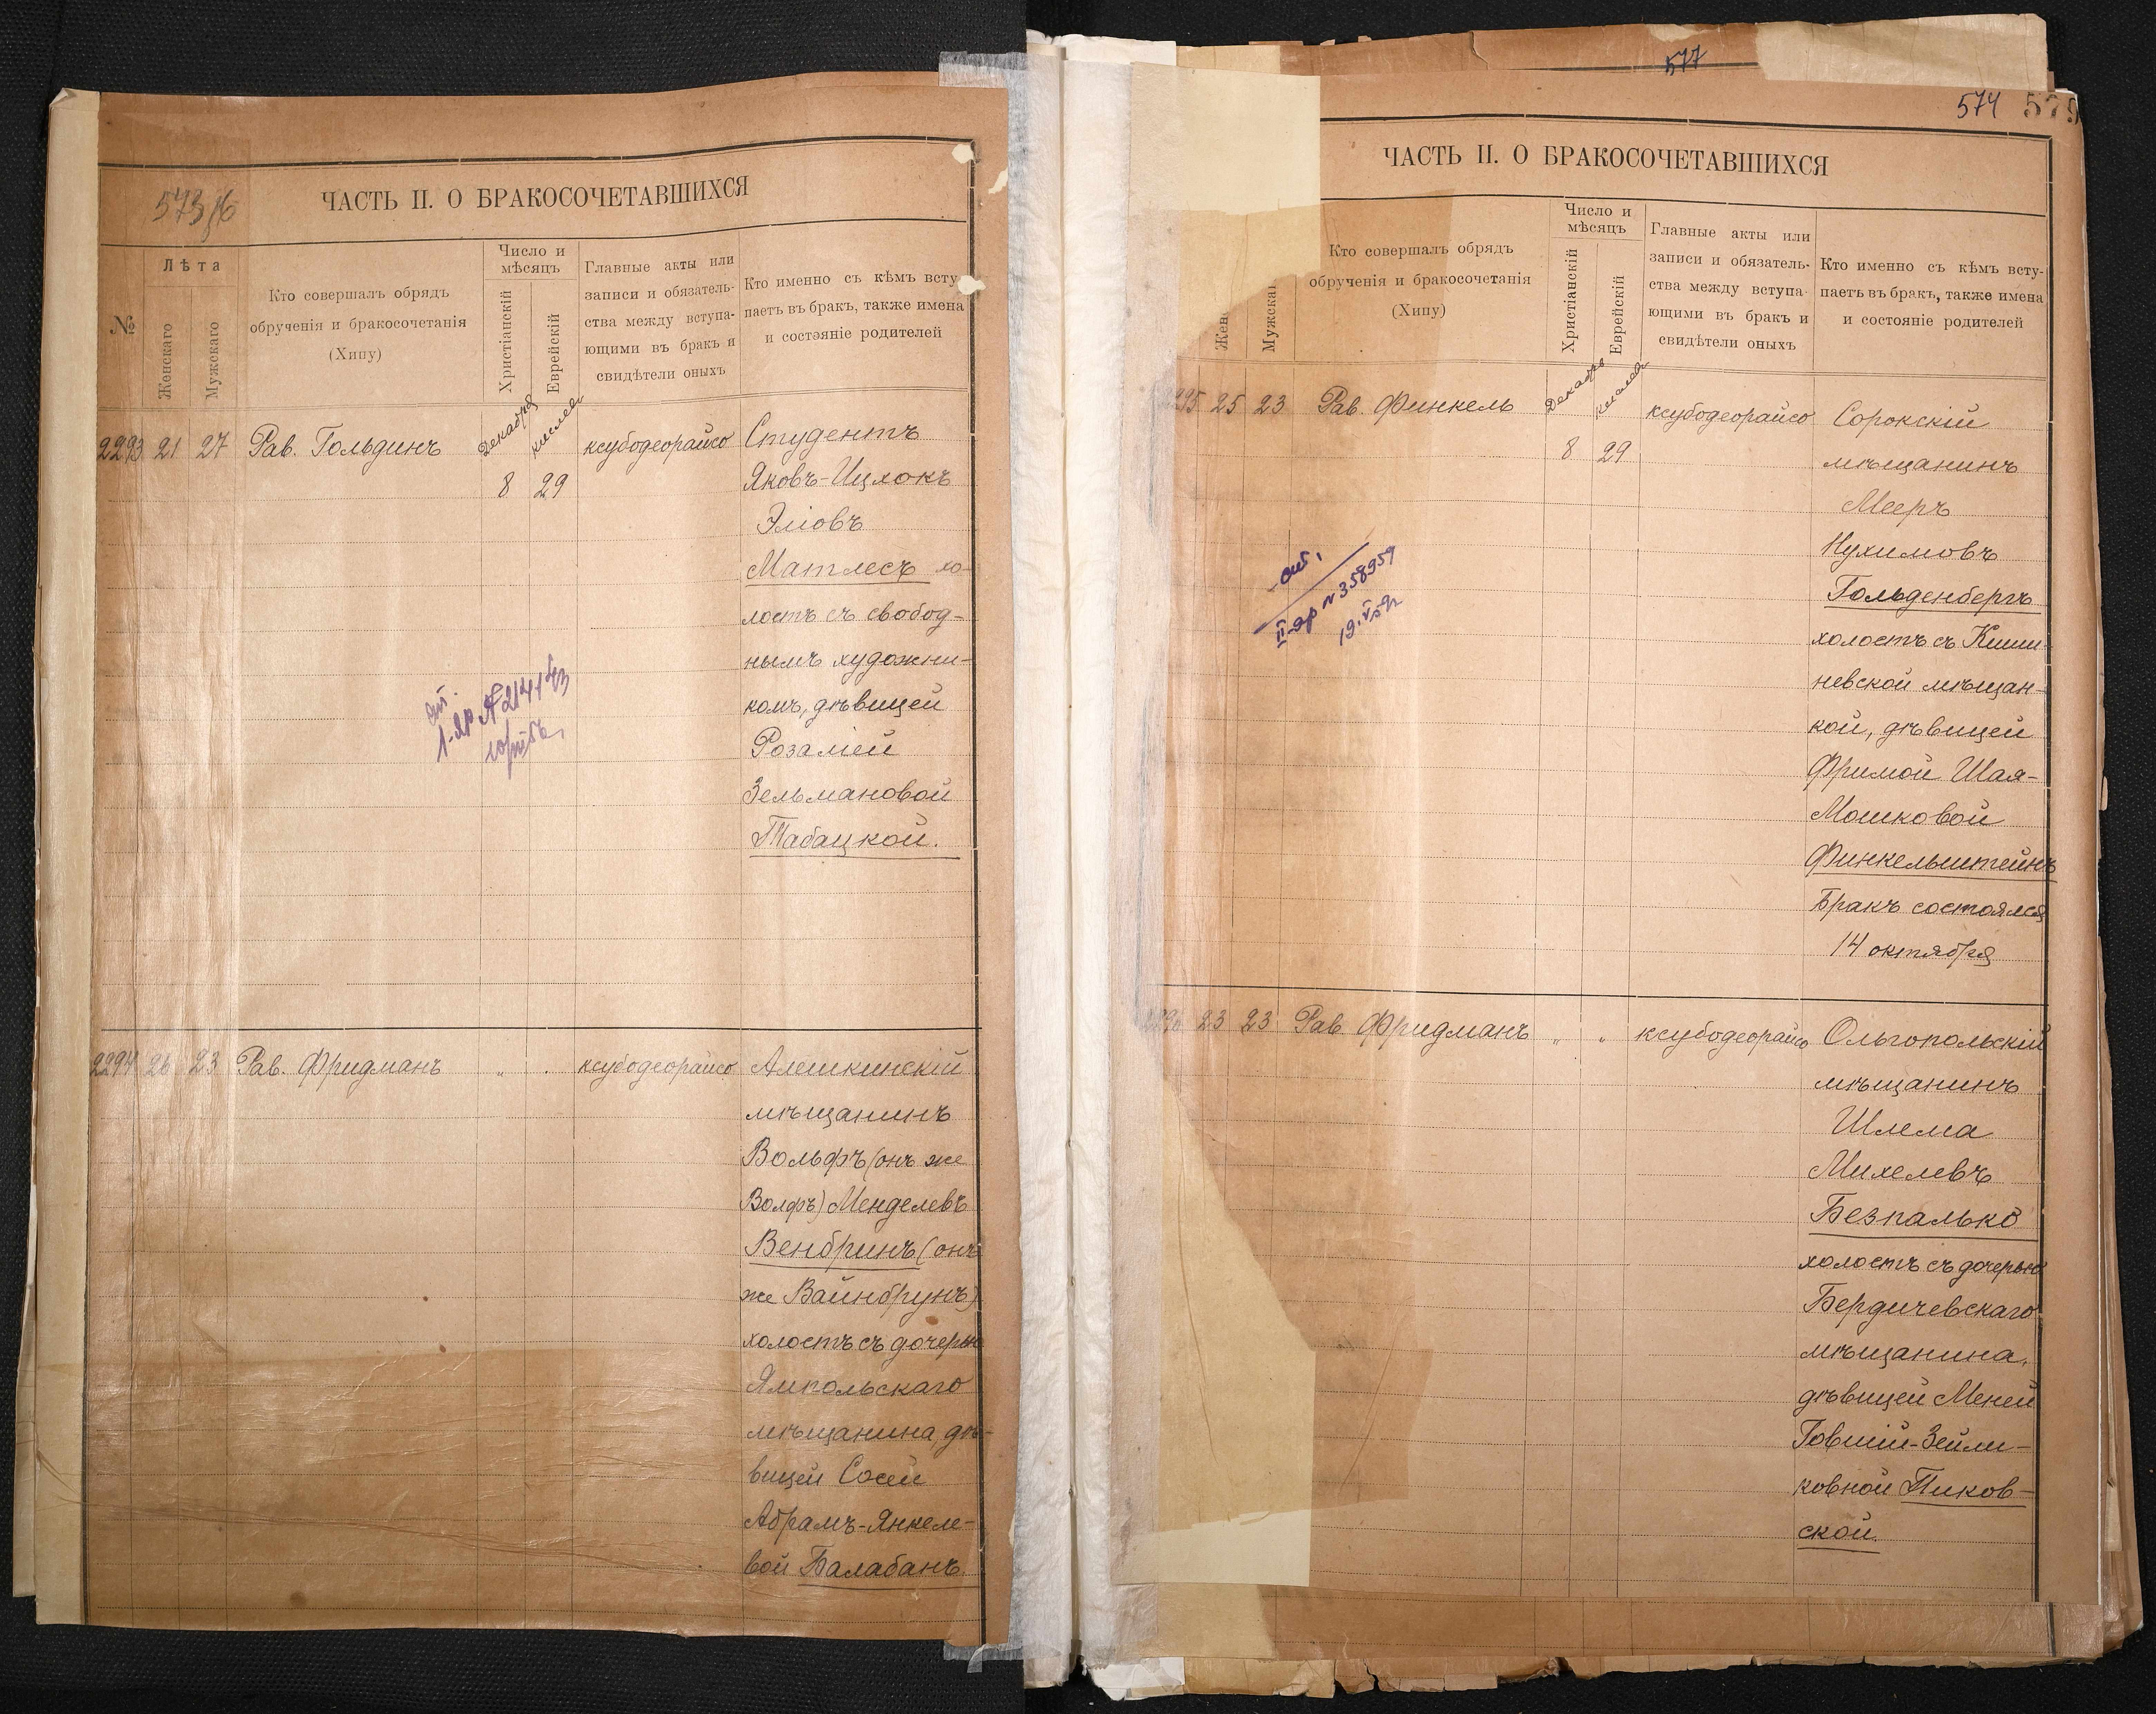 ЧАСТЬ II. О БРАКОСОЧЕТАВШИХСЯ
№
Лѣта
Женскаго
Мужскаго
Кто совершалъ обрядъ
обрученія и бракосочетанія
(Хипу)
Число и
мѣсяцъ
Христіанскій
Еврейскій
Главные акты или
записи и обязатель-
ства между вступа-
ющими въ бракъ и
свидѣтели оныхъ
Кто именно съ кѣмъ всту
паетъ въ бракъ, также имена
и состояніе родителей
2293 21 27 Рав. Гольдинъ Декабря кислев ксубодеорайсо Студентъ
8 29 Яковъ-Ицхокъ
Эліовъ
Матлесъ хо-
лостъ съ свобод-
нымъ художни-
комъ, дѣвицей
Розаліей
Зельмановой
Табацкой.
2294 26 23 Рав. Фридманъ „ „ ксубодеорайсо Алешкинскій
мѣщанинъ
Вольфъ (онъ же
Волфъ) Менделевъ
Венбринъ (онъ
же Вайнбрунъ)
холостъ съ дочерью
Ямпольскаго
мѣщанина, дѣ-
вицей Сосей
Абрамъ-Янкеле-
вой Балабанъ.
577
574 575
ЧАСТЬ II. О БРАКОСОЧЕТАВШИХСЯ
Мужскаг
Кто совершалъ обрядъ
обрученія и бракосочетанія
(Хипу)
Число и
мѣсяцъ
Христіанскій
Еврейскій
Главные акты или
записи и обязатель-
ства между вступа-
ющими въ бракъ и
свидѣтели оныхъ
Кто именно съ кѣмъ всту-
паетъ въ бракъ, также имена
и состояніе родителей
2295 25 23 Рав. Финкель Декабрь кислев ксубодеорайсо Сорокскій
8 29 мѣщанинъ
Мееръ
Нухимовъ
Гольденбергъ
холостъ съ Киши-
невской мѣщан-
кой, дѣвицей
Фримой Шая-
Мошковой
Финкельштейнъ
Бракъ состоялся
14 октября
II-яр № 358959
2296 23 23 Рав. Фридманъ „ „ ксубодеорайсо Ольгопольскій
мѣщанинъ
Шлема
Михелевъ
Безпалько
холостъ съ дочерью
Бердичевскаго
мѣщанина,
дѣвицей Меней
Говшій-Зейли-
ковной Пиков-
ской.